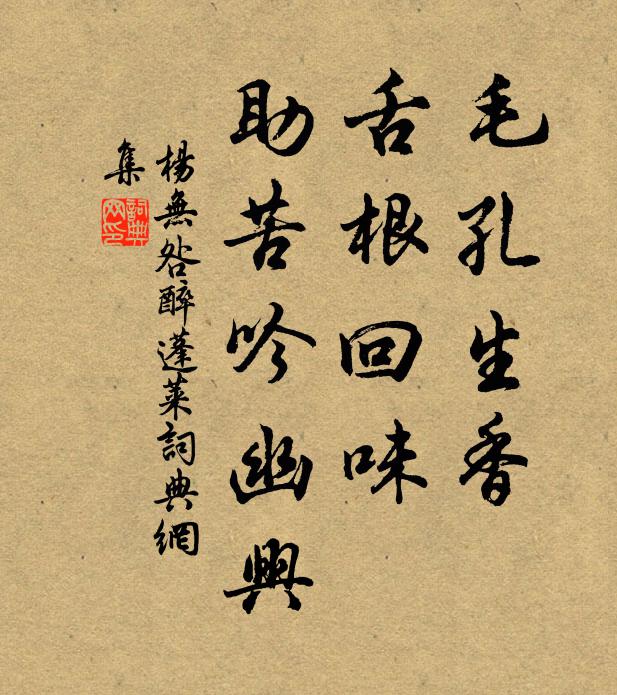 毛孔生香
舌根回味
助苦吟幽興
楊無咎醉蓬萊詞典網
集
詞典網印